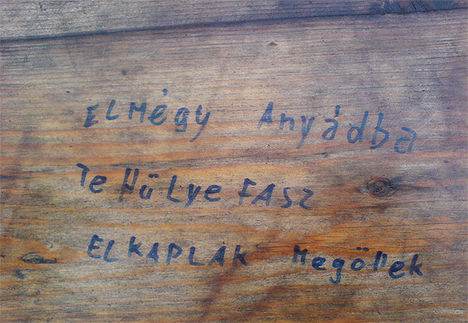 ELMégy Anyádba
Te HülyeFASZ
ELKAPLAK Megöllek